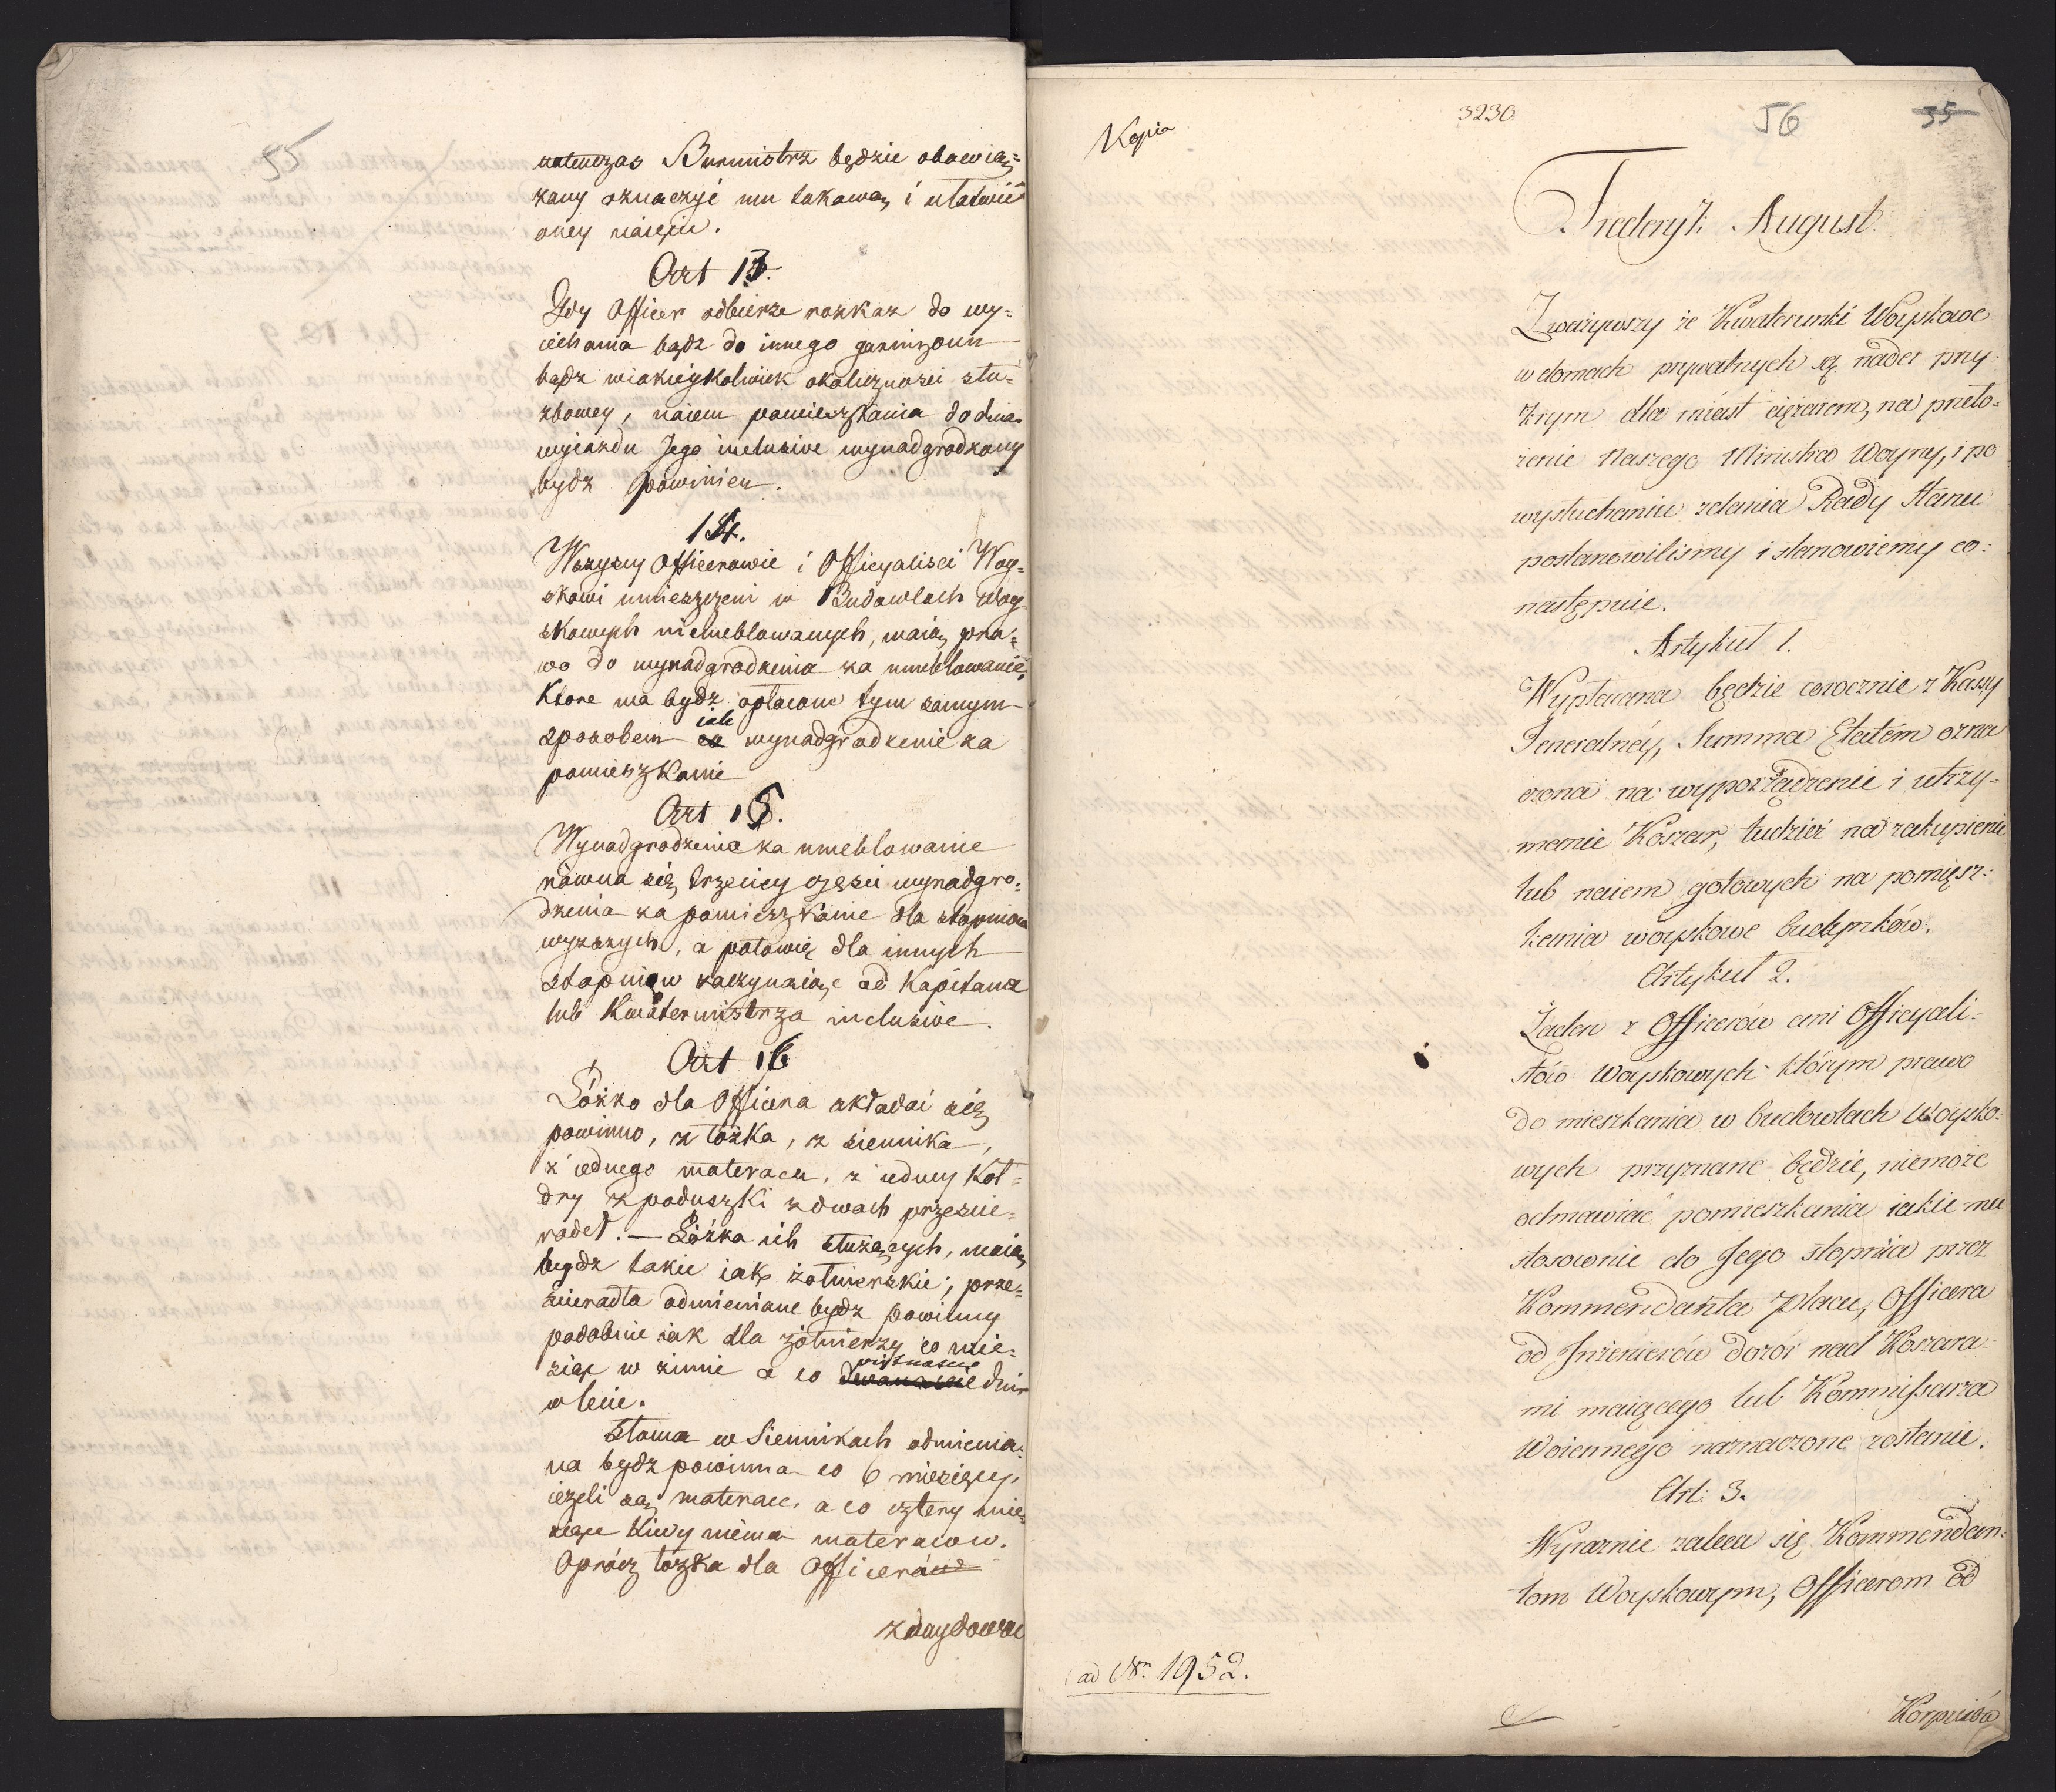 55
natenczas Burmistrz będzie obowią=
zany oznaczyć mu takową i ułatwić
oney naięcie.
Art 13.
Gdy Officer odbierze rozkaz do wy=
iechania bądz do innego garnizonu
bądz wiakieykolwiek okoliczności słu=
zbowey, naiem pomieszkania do dnia
wyiazdu Jego inclusive wynadgrodzony
bydz powinien.
14.
Wszyscy Officerowie i Officyalisci Woy=
skowi umieszczeni w Budowlach Woy=
skowych niemeblowanych, maią pra=
wo do wynadgrodzenia za umeblowanie,
Ktore ma bydz opłacone tym samym
sposobem iak wynadgrodzenie za
pomieszkanie
Art 15.
Wynadgrodzenie za umeblowanie
równa się trzeciey części wynadgro=
dzenia za pomieszkanie dla stopniow
wyzszych, a połowie dla innych
stopniow zaczynaiąc od Kapitana
lub Kwatermistrza inclusive.
Art 16
Łóżko dla Officera składać się
powinno, z łóżka, z siennika,
z iednego materaca, z iedney Koł=
dry z poduszki z dwoch przeście=
radeł. — Łóżka ich służących, maią
bydz takie iak żołnierskie; prze=
ścieradła odmieniane bydz powinny
podobnie iak dla żołnierzy co mie=
siąc w zimie a co dwanascie dni
w lecie.
Słoma w Siennikach odmienia=
na bydz powinna co 6 miesięcy,
ieżeli są materace, a co cztery mie=
siące Kiedy niema materacow.
Oprócz łóżka dla Officerów
znaydować
Kopia
3230
56
35
Fryderyk August
Zważywszy że Kwaterunki Woyskowe
w domach prywatnych są nader przy=
krym dla miast ciężarem, na przeło=
żenie Naszego Ministra Woyny, i po
wysłuchaniu zdania Rady Stanu
postanowiliśmy i stanowiemy co
następuie.
Artykuł 1.
Wypłacana będzie corocznie z Kassy
Generalnéy, Summa Etatem ozna
czona na wyporządzenie i utrzy=
manie Koszar, tudzież na zakupienie
lub naiem gotowych na pomiesz=
kania woyskowe budynków.
Artykuł 2.
Żaden z Officerów ani Officyali=
stów Woyskowych którym prawo
do mieszkania w budowlach Woysko=
wych przyznane będzie, niemoże
odmawiać pomieszkania iakie mu
stosownie do Jego stopnia przez
Kommendanta Placu, Officera
od Jnżenierów dozór nad Koszara=
mi maiącego lub Kommissarza
Woiennego naznaczone zostanie.
Art: 3.
Wyraznie zaleca się Kommendan=
tom Woyskowym, Officerom od
ad Nr. 1952.
Korpusów